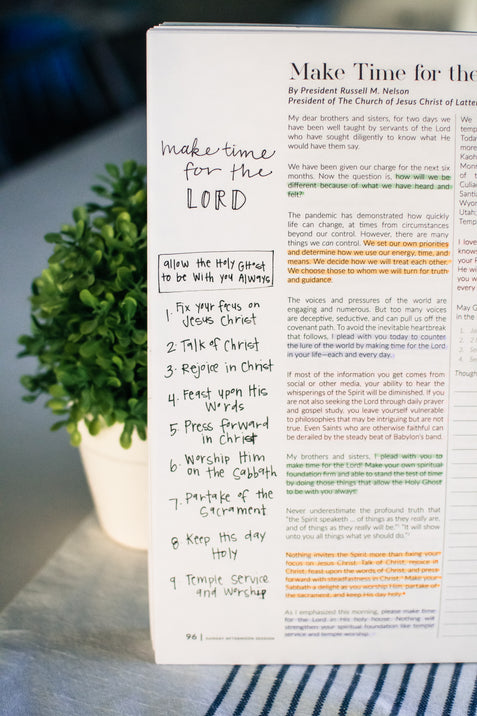 make time
for the
LORD
allow the Holy Ghost
to be with you Always
1. Fix your focus on
Jesus Christ
2. Talk of Christ
3. Rejoice in Christ
4. Feast upon His
Words
5. Press forward
in Christ
6. Worship Him
on the Sabbath
7. Partake of the
Sacrament
8 Keep His day
Holy
9 Temple service
and worship
96 | SUNDAY AFTERNOON SESSION
Make Time for the
By President Russell M. Nelson
President of The Church of Jesus Christ of Latter
My dear brothers and sisters, for two days we
have been well taught by servants of the Lord
who have sought diligently to know what He
would have them say.
We have been given our charge for the next six
months. Now the question is, how will we be
different because of what we have heard and
felt?
The pandemic has demonstrated how quickly
life can change, at times from circumstances
beyond our control. However, there are many
things we can control. We set our own priorities
and determine how we use our energy, time, and
means. We decide how we will treat each other.
We choose those to whom we will turn for truth
and guidance.
The voices and pressures of the world are
engaging and numerous. But too many voices
are deceptive, seductive, and can pull us off the
covenant path. To avoid the inevitable heartbreak
that follows, I plead with you today to counter
the lure of the world by making time for the Lord
in your life—each and every day.
If most of the information you get comes from
social or other media, your ability to hear the
whisperings of the Spirit will be diminished. If you
are not also seeking the Lord through daily prayer
and gospel study, you leave yourself vulnerable
to philosophies that may be intriguing but are not
true. Even Saints who are otherwise faithful can
be derailed by the steady beat of Babylon's band.
My brothers and sisters, I plead with you to
make time for the Lord! Make your own spiritual
foundation firm and able to stand the test of time
by doing those things that allow the Holy Ghost
to be with you always.
Never underestimate the profound truth that
"the Spirit speaketh ... of things as they really are,
and of things as they really will be." "It will show
unto you all things what ye should do."
Nothing invites the Spirit more than fixing your
focus on Jesus Christ. Talk of Christ, rejoice in
Christ, feast upon the words of Christ, and press
forward with steadfastness in Christ. Make your
Sabbath a delight as you worship Him, partake of
the sacrament, and keep His day holy.
As I emphasized this morning, please make time
for the Lord in His holy house. Nothing will
strengthen your spiritual foundation like temple
service and temple worship.
We
temp
Toda
more
Kaoh
Monr
of t
Culia
Santi
Wyor
Utah;
Temp
I love
know
your F
He wi
you w
every
May G
in the